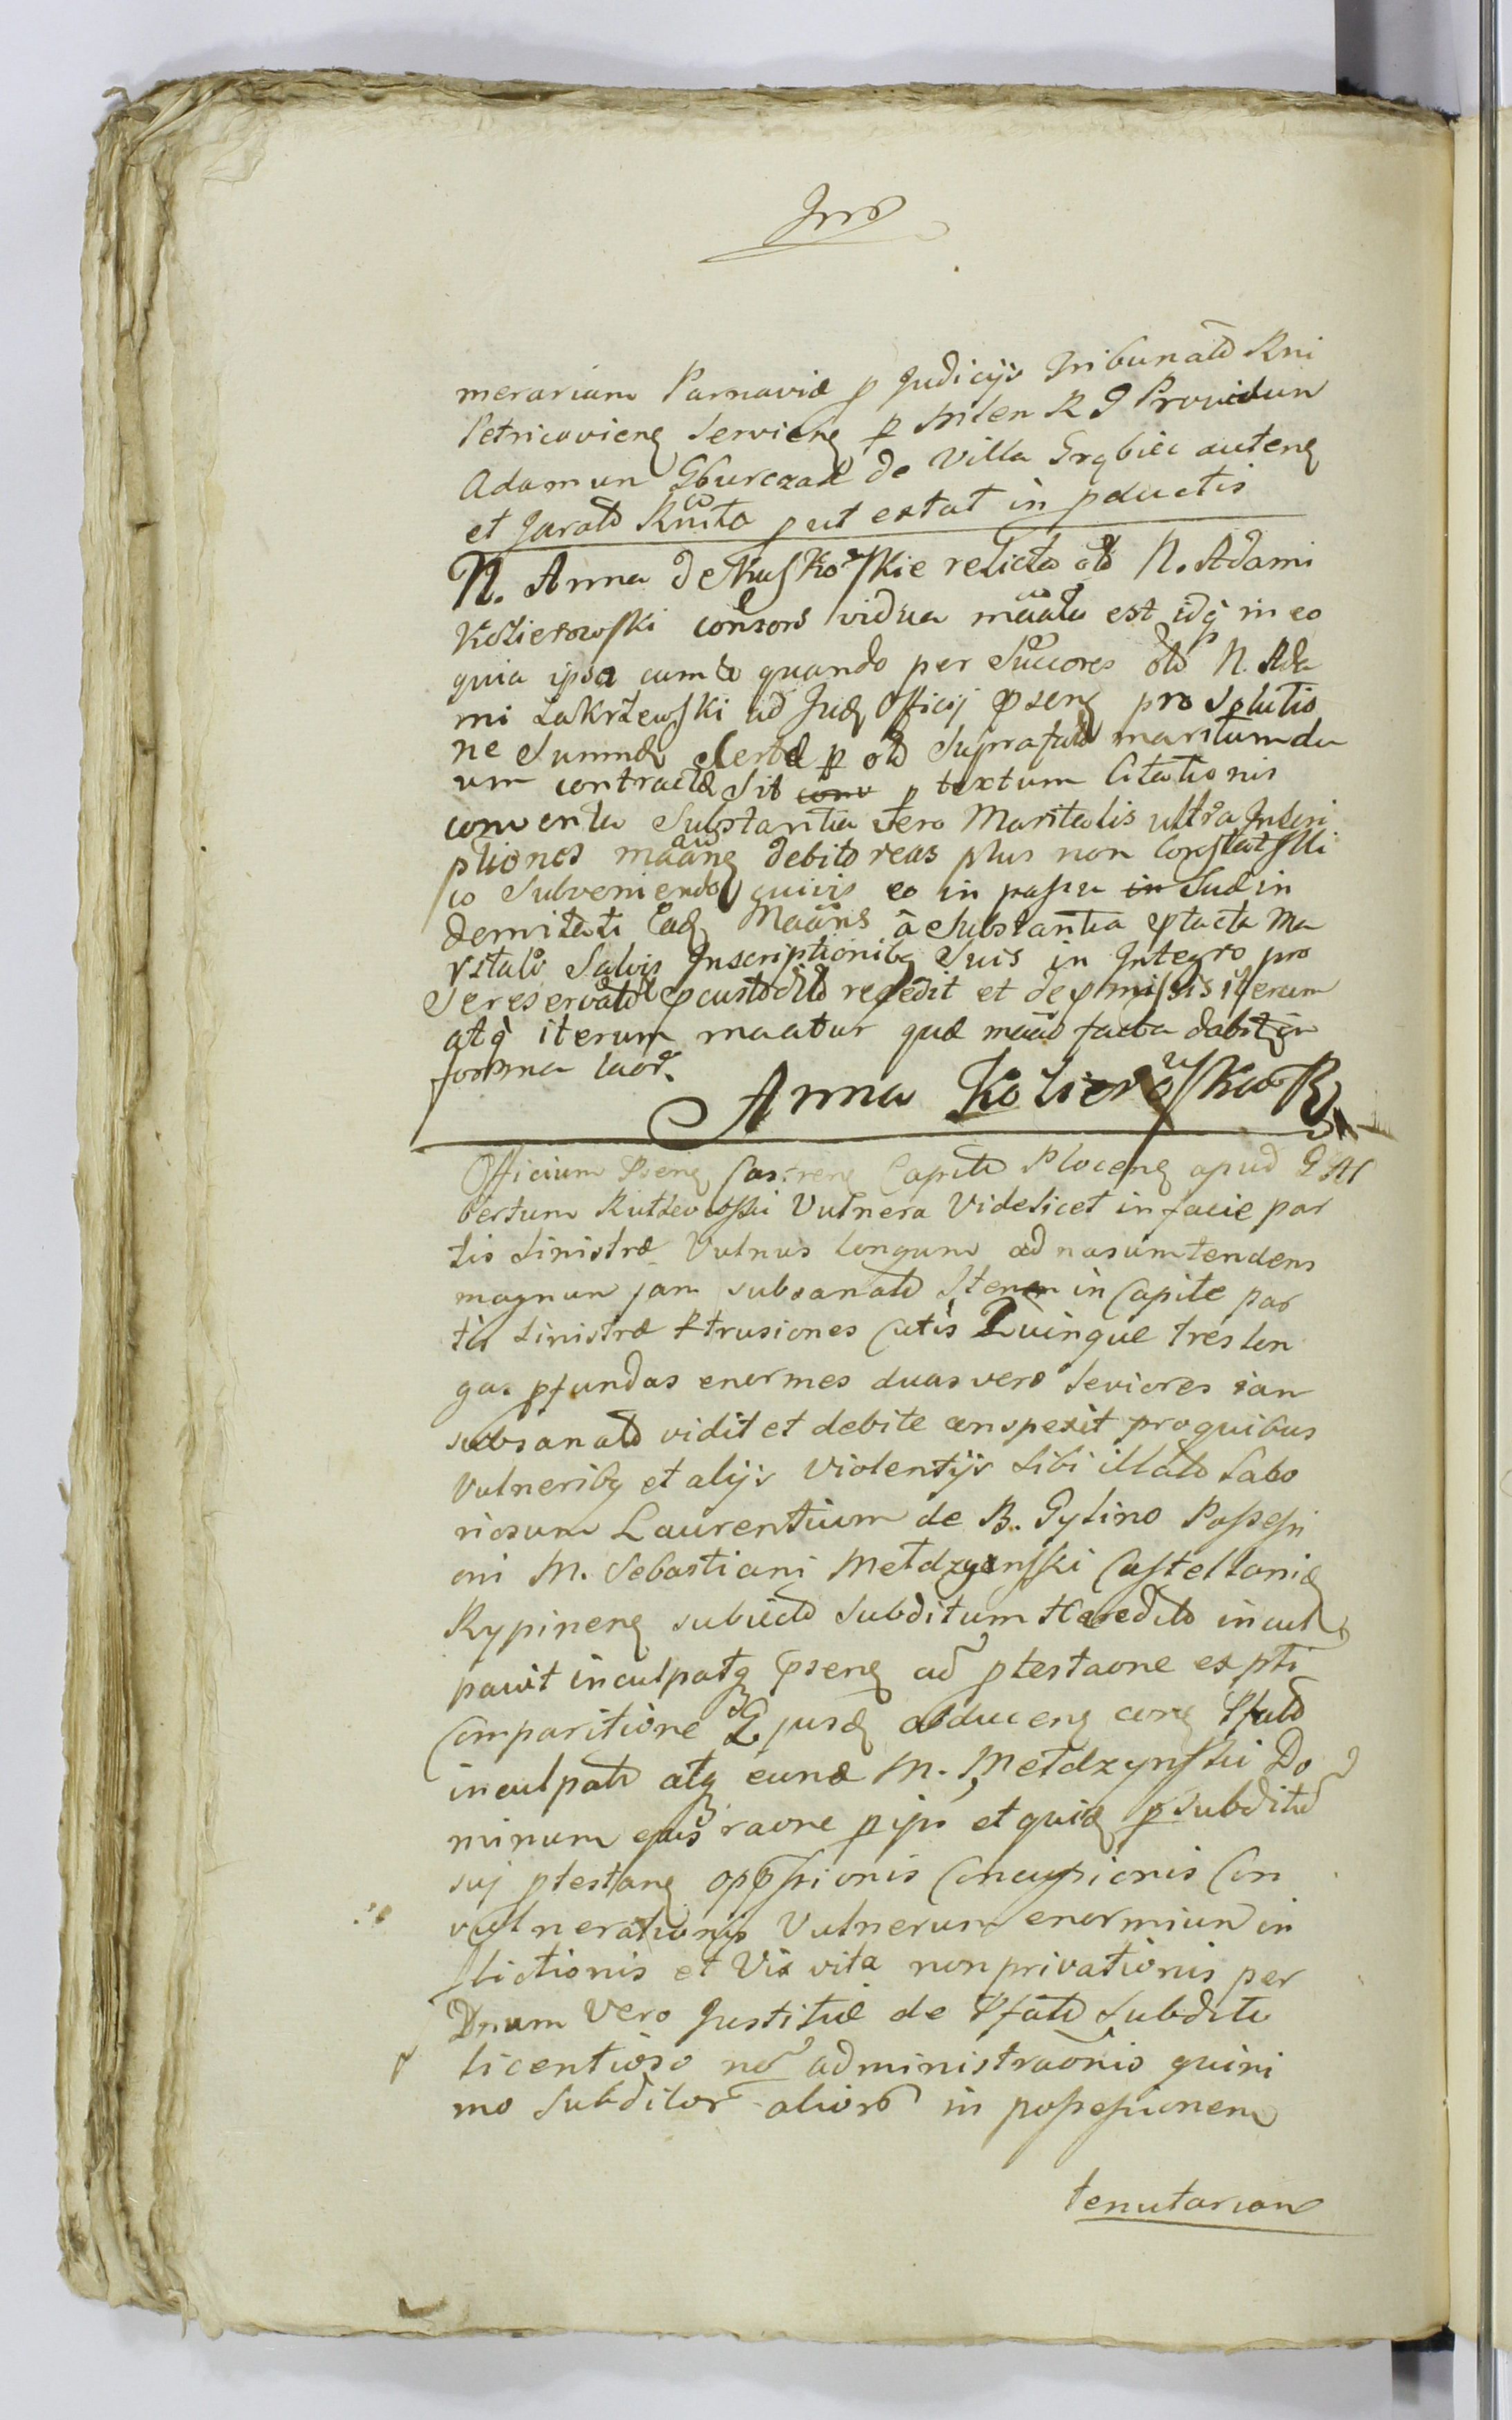 merariam Parnaviæ p Judicijs Tribunald Rni
Petricoviens serviens p Inten R G Providum
Adamum Gburczak de Villa Grąbiec autens
et Jurald Rnita put extat in pductis
N. Anna de Kuskowskie relicta old N. Adami
Kozierowski consors vidua mãata est idq in eo
quia ipsa cum do quando per Succores old N. Ada
mi Zakrzewski ad Jud Officij psens pro Solutio
ne Summæ certæ p old Suprafatū maritum du
um contractæ Sit conv p textum Citationis
conventa Substantia vero Maritalis ultra Inscri
ptiones mãans debito reas plus non Constat
io Subveniendo cuivis eo in passu in Suæ in
demnitati Ead Mãans a Substantia ptacta Ma
ritali Salvis Inscriptionibq Suis in Integro pro
Se reservatd et pcustodild recedit et de pmissis iterum
atq iterum maatur quæ maaō facta dabit in
forma laor.
Anna Kozierowska
Officium Psens Castrens Capita Plocens apud G Al
bertum Rutkowski Vulnera Videlicet in facie par
tis Sinistræ Vulnus longum ad nasum tendens
magnum jam subsanatd Item in Capite par
tis Sinistræ Ptrusiones Cutis Quinque tres lon
gas pfundas enormes duas vero leviores iam
subsanatd vidit et debite conspexit pro quibus
Vulneribq et alijs Violentijs Sibi illatd Labo
riosum Laurentium de B. Gylino Possessi
oni M. Sebastiani Metdzynski Castellanid
Rypinens subiectd Subditum Hæreditd incul
pavit inculpatq psens ad ptestaone ex pti
Comparitione Ejusd adducens cors Pfatd
inculpatd atq eund M. Metdzynski Do
minum ejus raone pijs et quid p Subditū
suj ptestans oppssionis Concussionis Con
vulnerationis Vulnerum enormium in
flictionis et Vix vita non privationis per
Dnum Vero Justitiæ de Pfatd Subdito
licentioso no administraonis quini
mo Subditor alior in possessionem
tenutariam